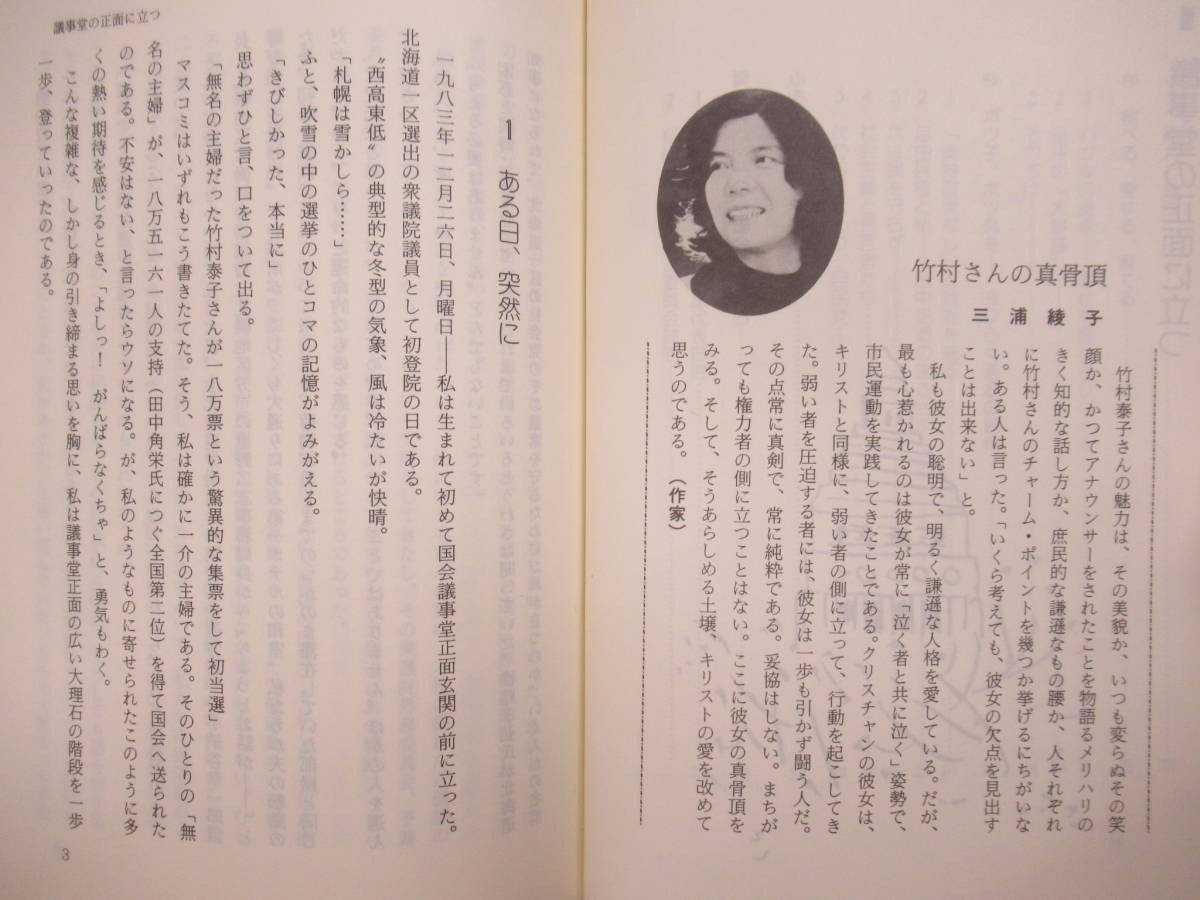 竹村さんの真骨頂
三浦綾子
竹村泰子さんの魅力は、その美貌か、いつも変らぬその笑
顔か、かつてアナウンサーをされたことを物語るメリハリの
きく知的な話し方か、庶民的な謙遜なもの腰か、人それぞれ
に竹村さんのチャーム・ポイントを幾つか挙げるにちがいな
い。ある人は言った。「いくら考えても、彼女の欠点を見出す
ことは出来ない」と。
私も彼女の聡明で、明るく謙遜な人格を愛している。だが、
最も心惹かれるのは彼女が常に「泣く者と共に泣く」姿勢で、
市民運動を実践してきたことである。クリスチャンの彼女は、
キリストと同様に、弱い者の側に立って、行動を起こしてき
た。弱い者を圧迫する者には、彼女は一歩も引かず闘う人だ。
その点常に真剣で、常に純粋である。妥協はしない。まちが
っても権力者の側に立つことはない。ここに彼女の真骨頂を
みる。そして、そうあらしめる土壌、キリストの愛を改めて
思うのである。（作家）
議事堂の正面に立つ
1 ある日、突然に
一九八三年一二月二六日、月曜日――私は生まれて初めて国会議事堂正面玄関の前に立った。
北海道一区選出の衆議院議員として初登院の日である。
〝西高東低〟の典型的な冬型の気象、風は冷たいが快晴。
「札幌は雪かしら……」
ふと、吹雪の中の選挙のひとコマの記憶がよみがえる。
「きびしかった、本当に」
思わずひと言、口をついて出る。
「無名の主婦だった竹村泰子さんが一八万票という驚異的な集票をして初当選」
マスコミはいずれもこう書きたてた。そう、私は確かに一介の主婦である。そのひとりの「無
名の主婦」が、一八万五一六一人の支持（田中角栄氏につぐ全国第二位）を得て国会へ送られた
のである。不安はない、と言ったらウソになる。が、私のようなものに寄せられたこのように多
くの熱い期待を感じるとき、「よしっ！　がんばらなくちゃ」と、勇気もわく。
こんな複雑な、しかし身の引き締まる思いを胸に、私は議事堂正面の広い大理石の階段を一歩
一歩、登っていったのである。
3